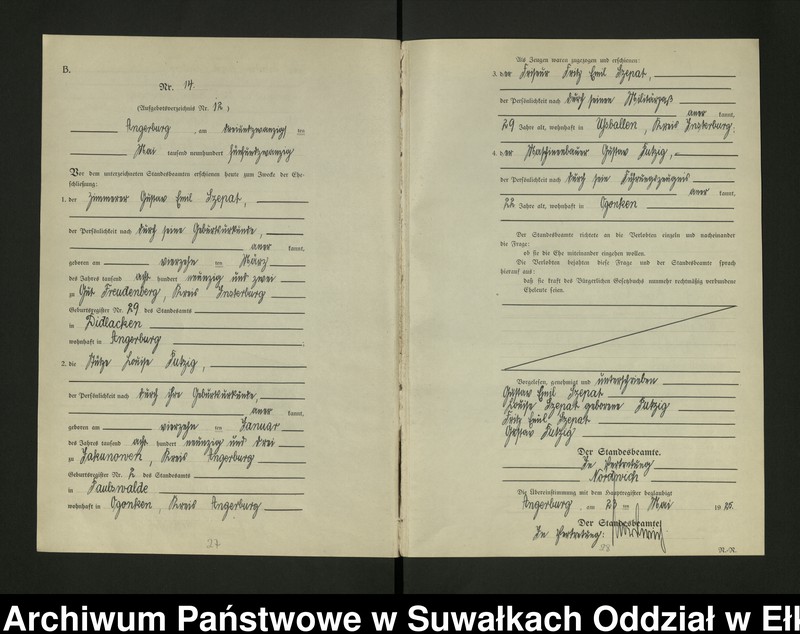 B.
Nr. 14.
(Aufgebotsverzeichnis Nr. 12.)
Angerburg, am dreiundzwanzigsten
Mai tausend neunhundert fünfundzwanzig
Vor dem unterzeichneten Standesbeamten erschienen heute zum Zwecke der Ehe-
schließung:
1. der Zimmerer Gustav Emil Szepat,
der Persönlichkeit nach durch seine Geburtsurkunde,
aner kannt,
geboren am vierzehn ten März
des Jahres tausend acht hundert neunzig und zwei
zu Gut Freudenberg, Kreis Insterburg
Geburtsregister Nr. 29 des Standesamts
in Didlacken
wohnhaft in Angerburg ;
2. die Stütze Louise Kutzig,
der Persönlichkeit nach durch ihre Geburtsurkunde,
aner kannt,
geboren am vierzehn ten Januar
des Jahres tausend acht hundert neunzig und drei
zu Jakunowen, Kreis Angerburg
Geburtsregister Nr. 2 des Standesamts
in Paulswalde
wohnhaft in Ogonken, Kreis Angerburg
27
Als Zeugen waren zugezogen und erschienen:
3. der Friseur Fritz Emil Szepat,
der Persönlichkeit nach durch seinen Militärpaß
aner kannt,
29 Jahre alt, wohnhaft in Uszballen, Kreis Insterburg;
4. der Maschinenbauer Gustav Kutzig,
der Persönlichkeit nach durch sein Führungszeugnis
aner kannt,
22 Jahre alt, wohnhaft in Ogonken
Der Standesbeamte richtete an die Verlobten einzeln und nacheinander
die Frage:
ob sie die Ehe miteinander eingehen wollen.
Die Verlobten bejahten diese Frage und der Standesbeamte sprach
hierauf aus:
daß sie kraft des Bürgerlichen Gesetzbuchs nunmehr rechtmäßig verbundene
Eheleute seien.
Vorgelesen, genehmigt und unterschrieben
Gustav Emil Szepat
Louise Szepat geborene Kutzig
Fritz Emil Szepat
Gustav Kutzig
Der Standesbeamte.
In Vertretung
Die Übereinstimmung mit dem Hauptregister beglaubigt
Angerburg, am 23 ten Mai 1925.
Der Standesbeamte
In Vertretung:
28
R.-R.
Archiwum Państwowe w Suwałkach Oddział w Ełk